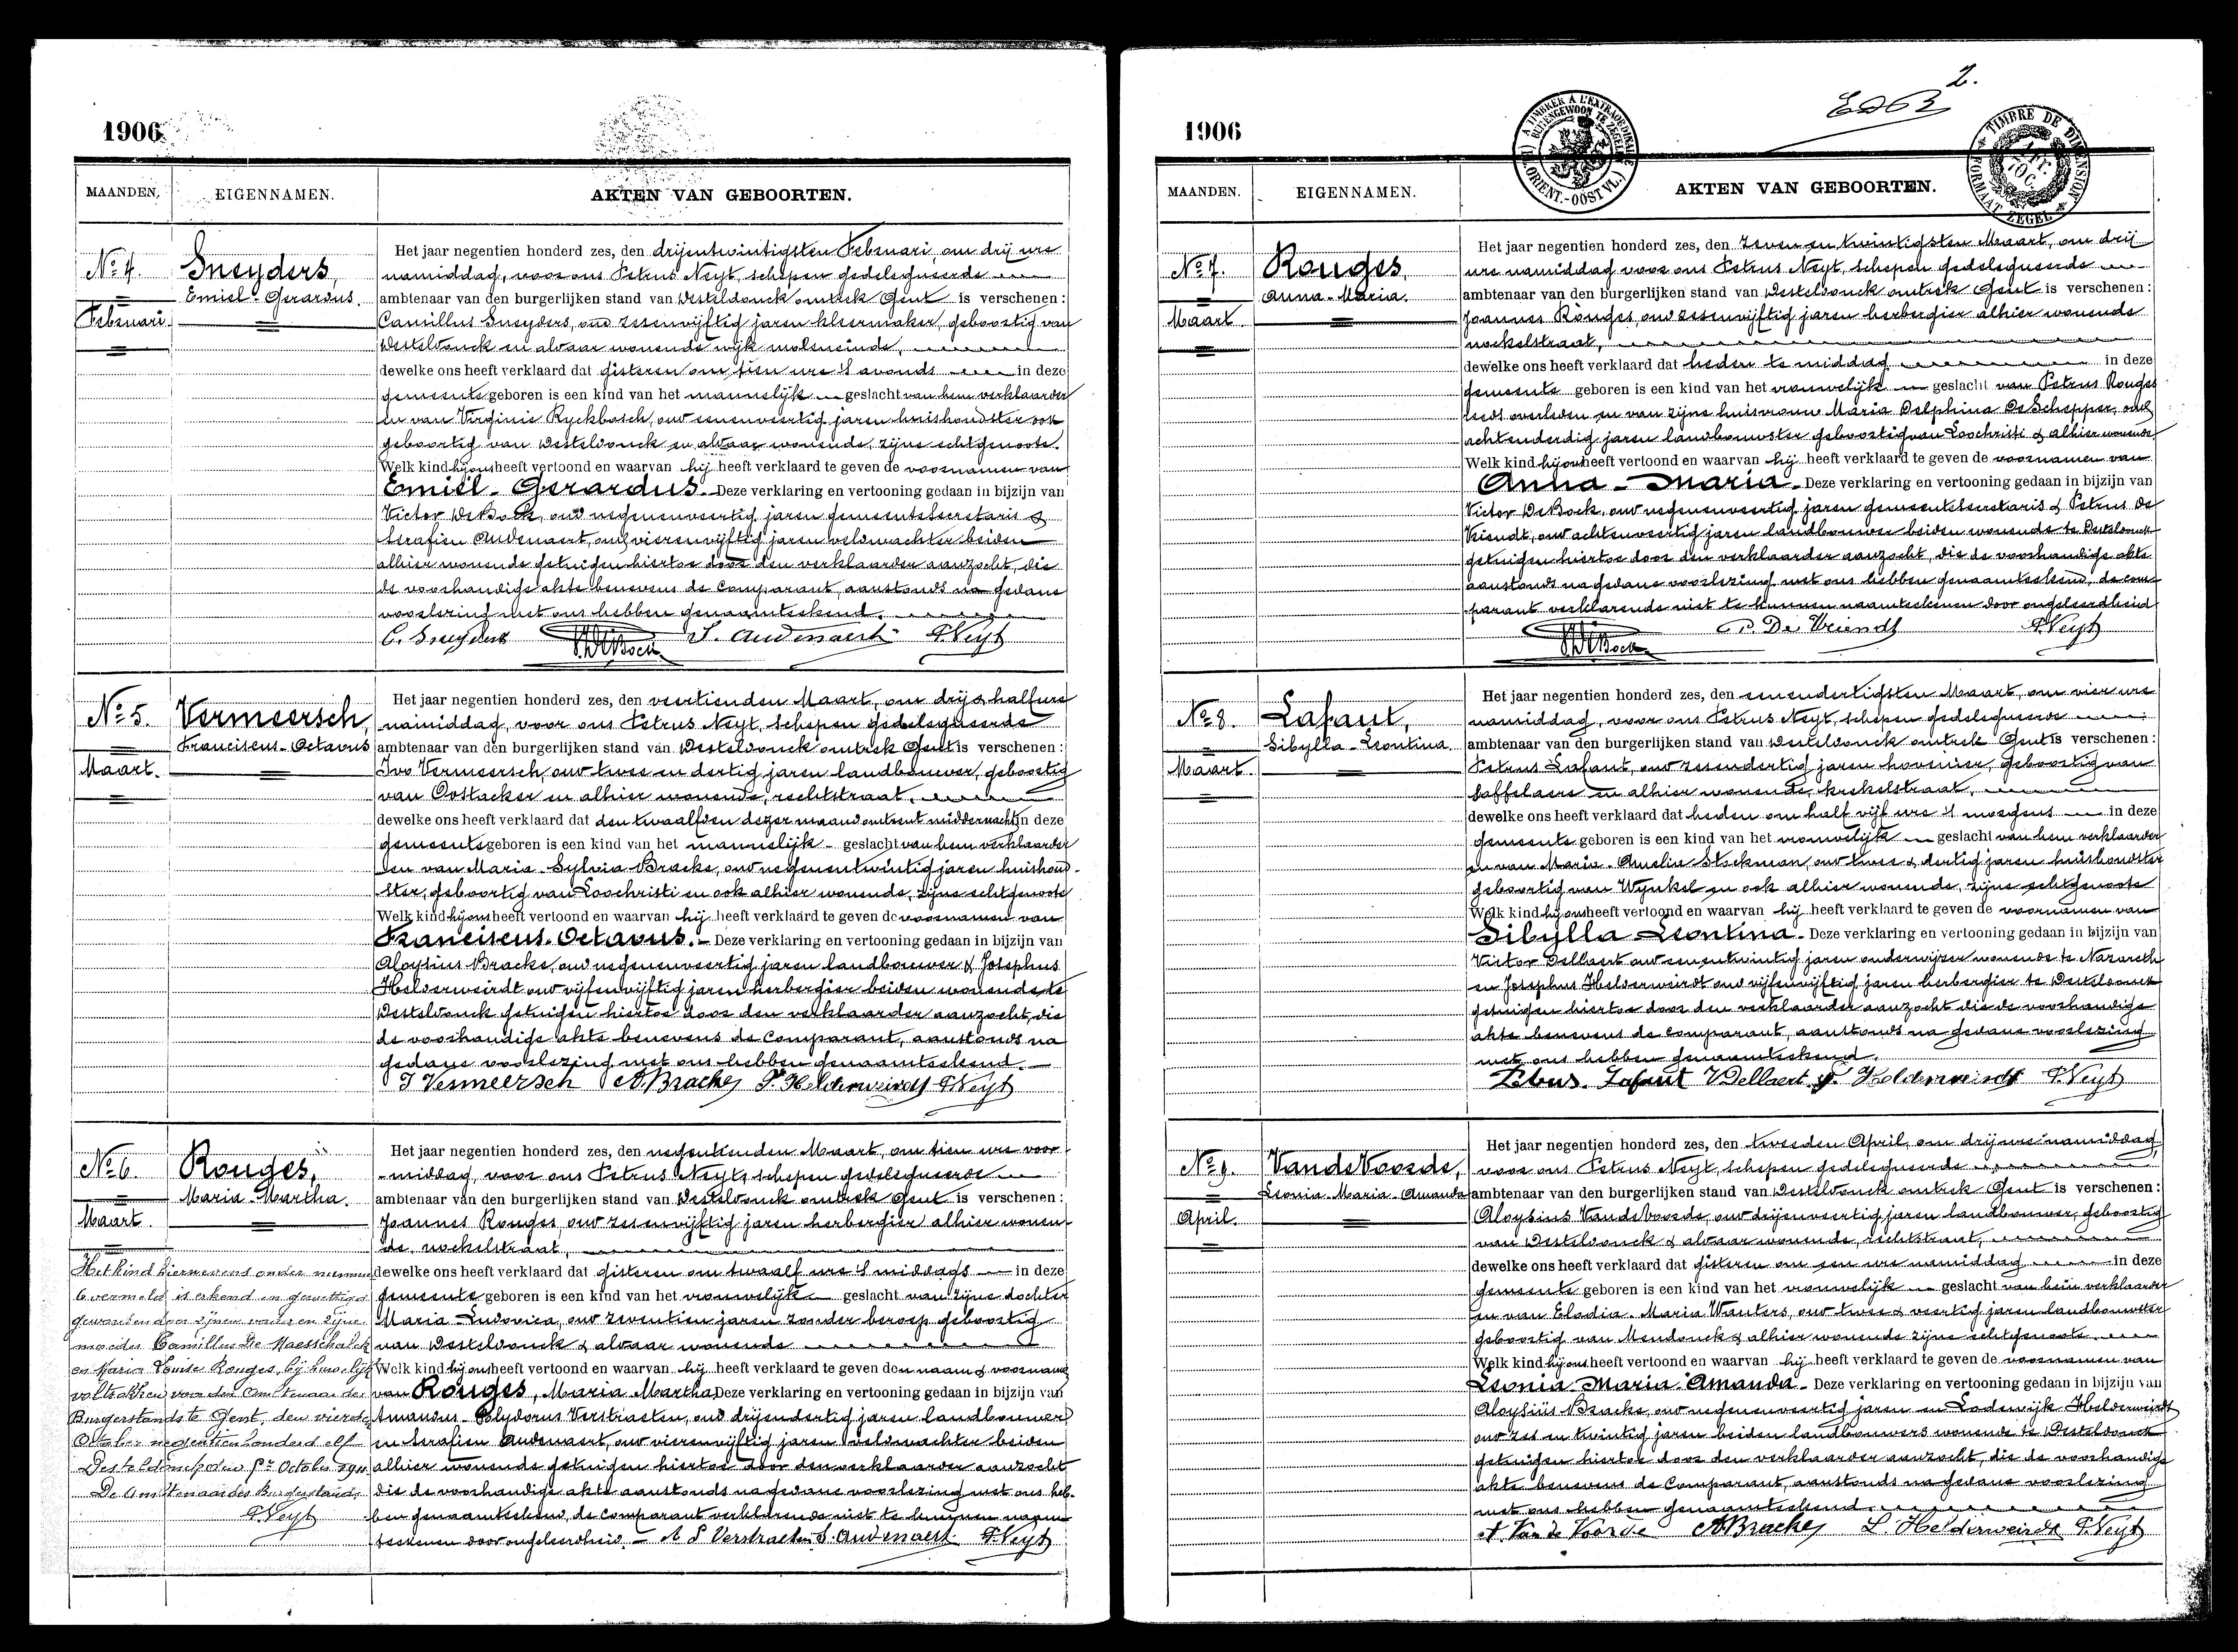 1906
MAANDEN. EIGENNAMEN. AKTEN VAN GEBOORTEN.
No 4. Sneyders,
Emiel-Gerardus.
Februari
Het jaar negentien honderd zes, den drijentwintigsten Februari, om drij ure
namiddag, voor ons Petrus Neyt, schepen gedelegueerde
ambtenaar van den burgerlijken stand van Desteldonck omtrek Gent is verschenen:
Camillus Sneyders, oud zesenvijftig jaren kleermaker, geboortig van
Desteldonck en aldaar wonende wijk moleneinde,
dewelke ons heeft verklaard dat gisteren om tien ure 's avonds in deze
gemeente geboren is een kind van het mannelijk geslacht van hem verklaarder
en van Virginie Ryckbosch, oud eenenveertig jaren huishoudster ook
geboortig van Desteldonck en aldaar wonende, zijne echtgenoote.
Welk kind hij ons heeft vertoond en waarvan hij heeft verklaard te geven de voornamen van
Emiel-Gerardus. Deze verklaring en vertooning gedaan in bijzijn van
Victor De Bock, oud negenenveertig jaren gemeentesecretaris &
Serafien Audenaert, oud vierenvijftig jaren veldwachter beiden
alhier wonende getuigen hiertoe door den verklaarder aanzocht, die
de voorhandige akte benevens de Comparant, aanstonds na gedane
voorlezing met ons hebben genaamteekend.
C. Sneyders VDeBock S. Audenaert P. Neyt
No 5. Vermeersch,
Franciscus-Octavus
Maart.
Het jaar negentien honderd zes, den veertienden Maart, om drij & half ure
namiddag, voor ons Petrus Neyt, schepen gedelegueerde
ambtenaar van den burgerlijken stand van Desteldonck omtrek Gent is verschenen:
Ivo Vermeersch, oud twee en dertig jaren landbouwer, geboortig
van Oostacker en alhier wonende, rechtstraat,
dewelke ons heeft verklaard dat den twaalfden dezer maand omtrent middernacht in deze
gemeente geboren is een kind van het mannelijk geslacht van hem verklaarder
en van Maria-Sylvia Bracke, oud negenentwintig jaren huishoud-
ster, geboortig van Loochristi en ook alhier wonende, zijne echtgenoote
Welk kind hij ons heeft vertoond en waarvan hij heeft verklaard te geven de voornamen van
Franciscus-Octavus. Deze verklaring en vertooning gedaan in bijzijn van
Aloysius Bracke, oud negenenveertig jaren landbouwer & Josephus
Helderweirdt oud vijfenvijftig jaren herbergier beiden wonende te
Desteldonck getuigen hiertoe door den verklaarder aanzocht, die
de voorhandige akte benevens de Comparant, aanstonds na
gedane voorlezing met ons hebben genaamteekend.
I Vermeersch A. Bracke J. Helderweirdt P. Neyt
No 6. Rouges,
Maria-Martha.
Maart.
Het kind hiernevens onder nummer
6 vermeld is erkend en gewettigd
geworden door zijnen vader en zijne
moeder Camillus De Maesschalck
en Maria Louise Rouges, bij huwelijk
voltrokken voor den Ambtenaar des
Burgerstands te Gent, den vierden
October negentienhonderd elf
Desteldonck den October 1911
De Ambtenaar des Burgerstands,
P. Neyt
Het jaar negentien honderd zes, den negentienden Maart, om tien ure voor-
middag, voor ons Petrus Neyt, schepen gedelegueerde
ambtenaar van den burgerlijken stand van Desteldonck omtrek Gent is verschenen:
Joannes Rouges, oud zesenvijftig jaren herbergier alhier wonen-
de, nockelstraat,
dewelke ons heeft verklaard dat gisteren om twaalf ure 's middags in deze
gemeente geboren is een kind van het vrouwelijk geslacht van zijne dochter
Maria Ludovica, oud zeventien jaren zonder beroep geboortig
van Desteldonck & aldaar wonende
Welk kind hij ons heeft vertoond en waarvan hij heeft verklaard te geven den naam & voornamen
van Rouges, Maria Martha Deze verklaring en vertooning gedaan in bijzijn van
Amandus-Polydorus Verstraeten, oud drijendertig jaren landbouwer
en Serafien Audenaert, oud vierenvijftig jaren veldwachter beiden
alhier wonende getuigen hiertoe door den verklaarder aanzocht
die de voorhandige akte aanstonds na gedane voorlezing met ons heb-
ben genaamteekend, de comparant verklarende niet te kunnen naam-
teekenen door ongeleerdheid. A P Verstraeten S. Audenaert P. Neyt
2.
1906
A TIMBRER A L'EXTRAORDINAIRE
BUITENGEWOON TE ZEGELEN
(FL. ORIENT.-OOST VL.)
TIMBRE DE DIMENSION
FORMAAT ZEGEL
MAANDEN. EIGENNAMEN. AKTEN VAN GEBOORTEN.
No 7. Rouges,
Anna-Maria.
Maart
Het jaar negentien honderd zes, den zeven en twintigsten Maart, om drij
ure namiddag voor ons Petrus Neyt, schepen gedelegueerde
ambtenaar van den burgerlijken stand van Desteldonck omtrek Gent is verschenen:
Joannes Rouges, oud zesenvijftig jaren herbergier alhier wonende
nockelstraat,
dewelke ons heeft verklaard dat heden te middag in deze
gemeente geboren is een kind van het vrouwelijk geslacht van Petrus Rouges
reeds overleden en van zijne huisvrouw Maria Delphina De Schepper, oud
achtendertig jaren landbouwster geboortig van Loochristi & alhier wonende
Welk kind hij ons heeft vertoond en waarvan hij heeft verklaard te geven de voornamen van
Anna-Maria. Deze verklaring en vertooning gedaan in bijzijn van
Victor De Bock, oud negenenveertig jaren gemeentesecretaris & Petrus De
Vriendt, oud achtenveertig jaren landbouwer beiden wonende te Desteldonck
getuigen hiertoe door den verklaarder aanzocht, die de voorhandige akte
aanstonds na gedane voorlezing met ons hebben genaamteekend, de com-
parant verklarende niet te kunnen naamteekenen door ongeleerdheid
VDeBock P. De Vriendt P. Neyt
No 8. Lafaut,
Sibylla-Leontina.
Maart.
Het jaar negentien honderd zes, den eenendertigsten Maart, om vier ure
namiddag, voor ons Petrus Neyt, schepen gedelegueerde
ambtenaar van den burgerlijken stand van Desteldonck omtrek Gent is verschenen:
Petrus Lafaut, oud zesendertig jaren hovenier, geboortig van
Saffelaere en alhier wonende, krekelstraat,
dewelke ons heeft verklaard dat heden om half vijf ure 's morgens in deze
gemeente geboren is een kind van het vrouwelijk geslacht van hem verklaarder
en van Maria-Amelia Stockman, oud twee & dertig jaren huishoudster
geboortig van Wynkel en ook alhier wonende, zijne echtgenoote
Welk kind hij ons heeft vertoond en waarvan hij heeft verklaard te geven de voornamen van
Sibylla Leontina. Deze verklaring en vertooning gedaan in bijzijn van
Victor Dellaert oud eenentwintig jaren onderwijzer wonende te Nazareth
en Josephus Helderweirdt oud vijfenvijftig jaren herbergier te Desteldonck
getuigen hiertoe door den verklaarder aanzocht die de voorhandige
akte benevens de comparant, aanstonds na gedane voorlezing
met ons hebben genaamteekend.
Petrus Lafaut V Dellaert J. Helderweirdt P. Neyt
No 9. VandeVoorde,
Leonia-Maria-Amanda
April.
Het jaar negentien honderd zes, den tweeden April, om drij ure namiddag,
voor ons Petrus Neyt, schepen gedelegueerde
ambtenaar van den burgerlijken stand van Desteldonck omtrek Gent is verschenen:
Aloysius VandeVoorde, oud drijenveertig jaren landbouwer, geboortig
van Desteldonck & aldaar wonende, rechtstraat,
dewelke ons heeft verklaard dat gisteren om een ure namiddag in deze
gemeente geboren is een kind van het vrouwelijk geslacht van hem verklaarder
en van Elodia-Maria Wauters, oud twee & veertig jaren landbouwster
geboortig van Mendonck & alhier wonende zijne echtgenoote.
Welk kind hij ons heeft vertoond en waarvan hij heeft verklaard te geven de voornamen van
Leonia-Maria-Amanda Deze verklaring en vertooning gedaan in bijzijn van
Aloysiüs Bracke, oud negenenveertig jaren en Lodewijk Helderweirdt
oud zes en twintig jaren beiden landbouwers wonende te Desteldonck
getuigen hiertoe door den verklaarder aanzocht, die de voorhandige
akte benevens de Comparant, aanstonds na gedane voorlezing
met ons hebben genaamteekend.
A. Van de Voorde A. Bracke L. Helderweirdt P. Neyt